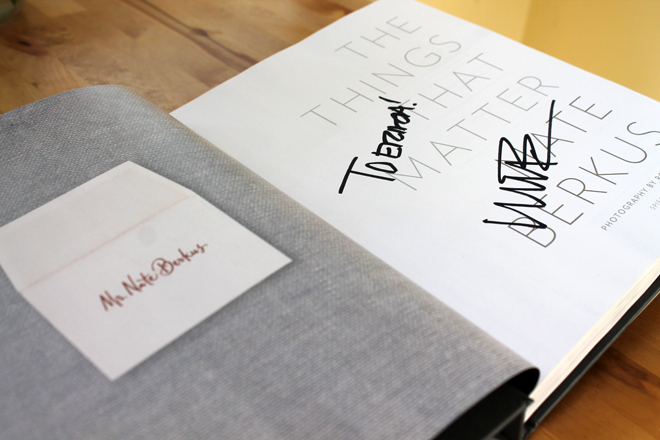 Mr. Nate Berkus.
THE
THINGS
THAT
MATTER
To ERANDA!
NATE
BERKUS
PHOTOGRAPHY BY